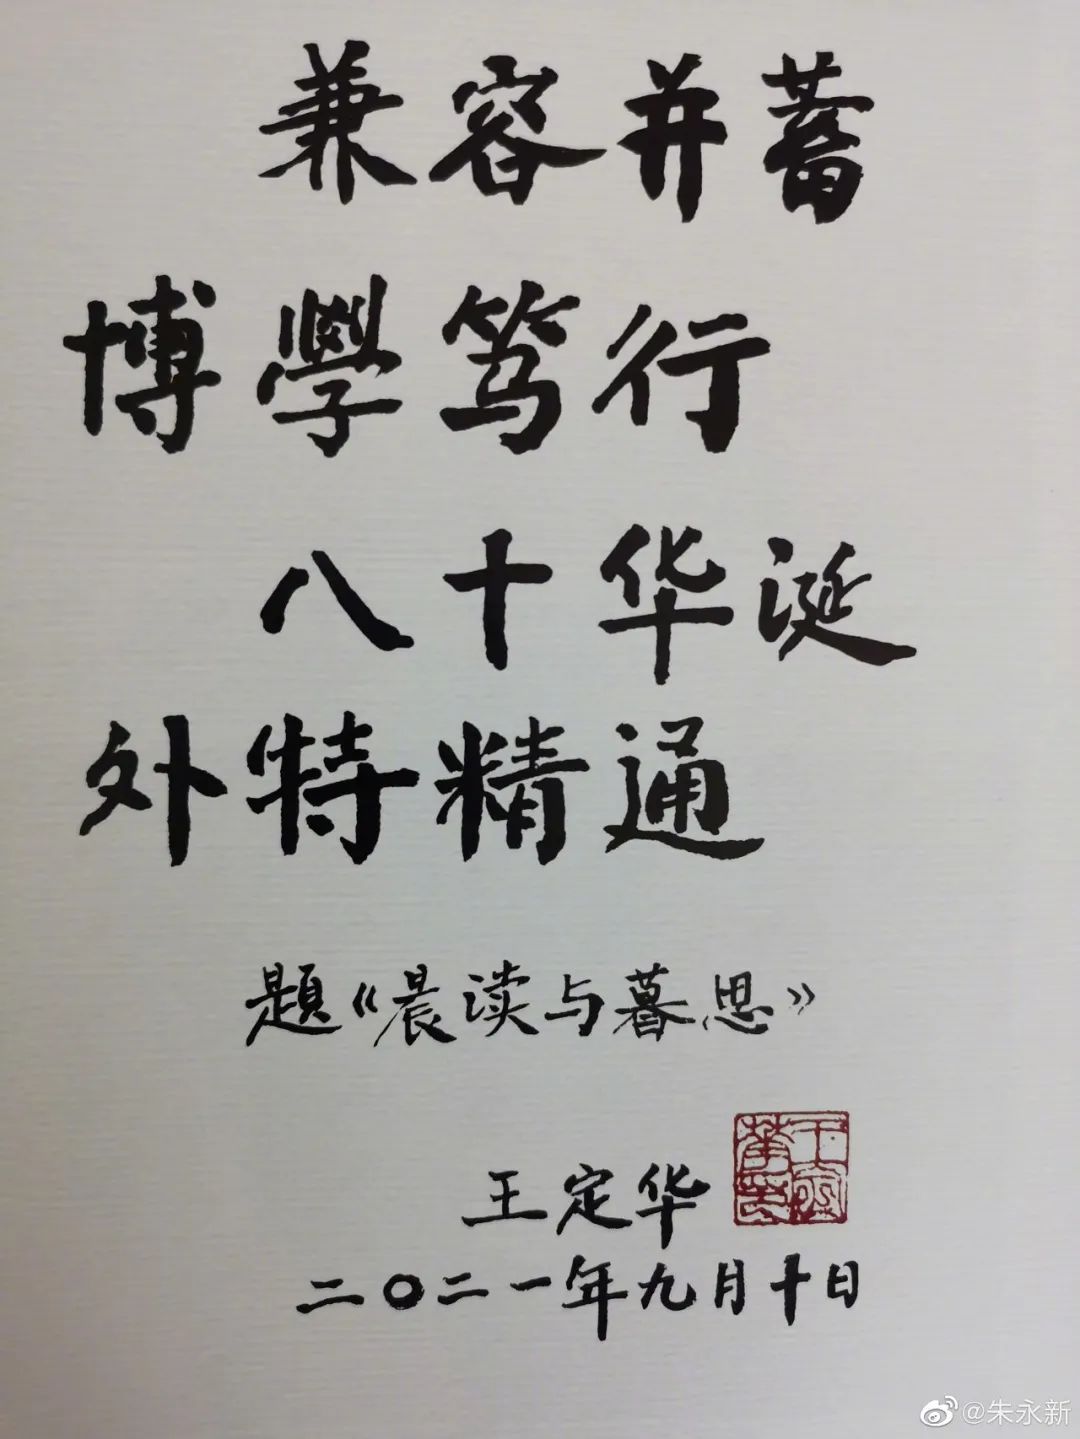 兼容并蓄
博學笃行
八十华诞
外特精通
題《晨读与暮思》
王定华
二〇二一年九月十日
@朱永新